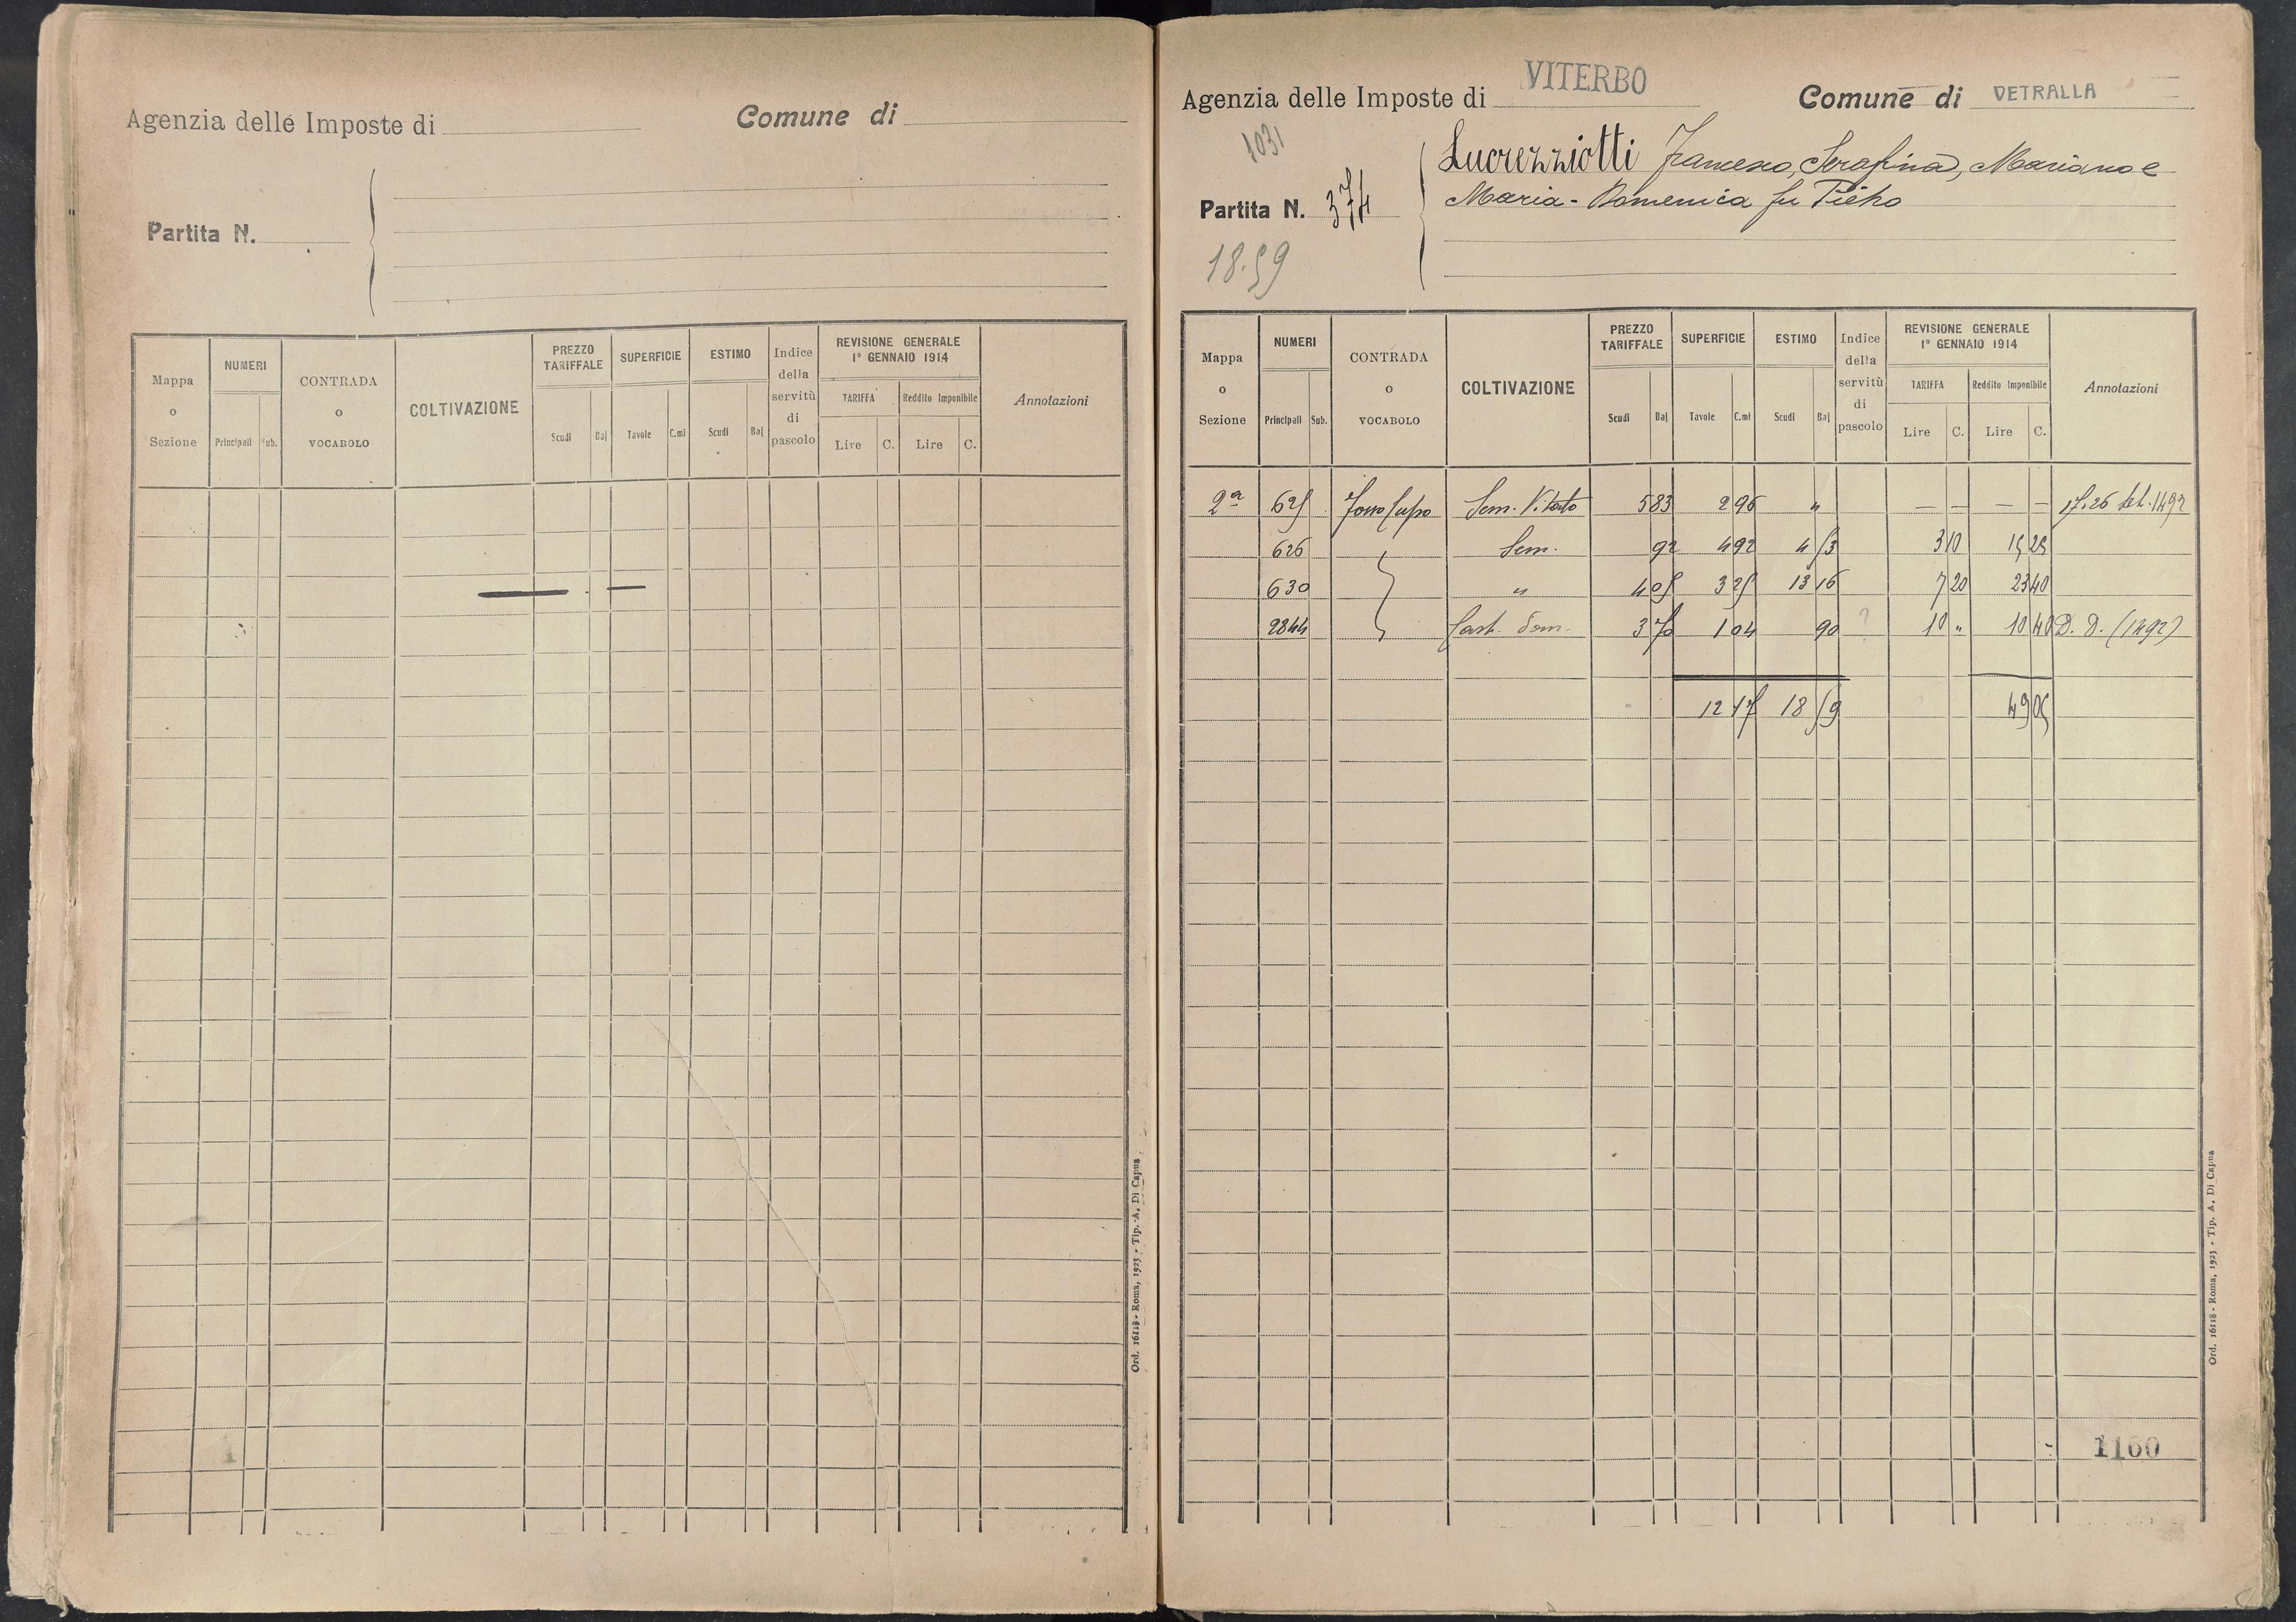 Agenzia delle Imposte di
Comune di
Partita N.
Mappa o Sezione
NUMERI
Principali Sub.
CONTRADA o VOCABOLO
COLTIVAZIONE
PREZZO TARIFFALE
Scudi Baj
SUPERFICIE
Tavole C.mi
ESTIMO
Scudi Baj
Indice della servitù di pascolo
REVISIONE GENERALE
1° GENNAIO 1914
TARIFFA Reddito Imponibile
Lire C. Lire C.
Annotazioni
Ord. 16118 - Roma, 1923 - Tip. A. Di Capua
Agenzia delle Imposte di VITERBO
Comune di VETRALLA
1031
Partita N. 374
18.59
Lucrezziotti Francesco, Serafina, Mariano e
Maria-Domenica fu Pietro
Mappa o Sezione
NUMERI
Principali Sub.
CONTRADA o VOCABOLO
COLTIVAZIONE
PREZZO TARIFFALE
Scudi Baj
SUPERFICIE
Tavole C.mi
ESTIMO
Scudi Baj
Indice della servitù di pascolo
REVISIONE GENERALE
1° GENNAIO 1914
TARIFFA Reddito Imponibile
Lire C. Lire C.
Annotazioni
2ª 625 Sem. Vitato 5 83 2 96 " — — — —
626 Sem. 92 4 92 4 53 3 10 15 25
630 " 4 05 3 25 13 16 7 20 23 40
2844 Cast. 1 04 90 ? 10 " 10 40 D. D. (1492)
12 17 18 59 49 05
1160
Ord. 16118 - Roma, 1923 - Tip. A. Di Capua